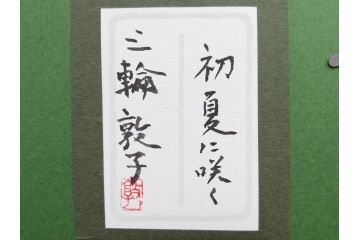 初夏に咲く
三輪敦子
敦